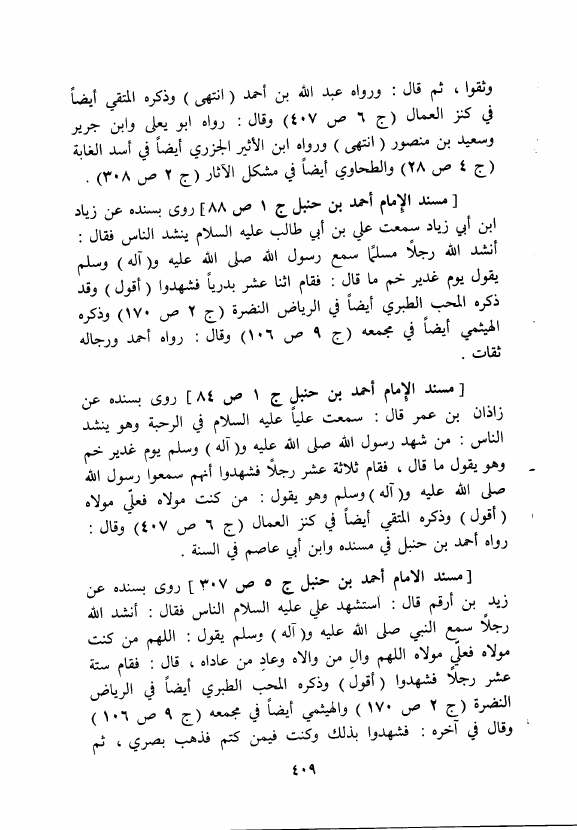 وثقوا ، ثم قال : ورواه عبد الله بن أحمد ( انتهى ) وذكره المتقي أيضاً
في كنز العمال ( ج ٦ ص ٤٠٧ ) وقال : رواه ابو يعلى وابن جرير
وسعيد بن منصور ( انتهى ) ورواه ابن الأثير الجزري أيضاً في أسد الغابة
( ج ٤ ص ٢٨ ) والطحاوي أيضاً في مشكل الآثار ( ج ٢ ص ٣٠٨ ) .
[ مسند الإمام أحمد بن حنبل ج ١ ص ٨٨ ] روى بسنده عن زياد
ابن أبي زياد سمعت علي بن أبي طالب عليه السلام ينشد الناس فقال :
أنشد الله رجلاً مسلماً سمع رسول الله صلى الله عليه و( آله ) وسلم
يقول يوم غدير خم ما قال : فقام اثنا عشر بدرياً فشهدوا ( أقول ) وقد
ذكره المحب الطبري أيضاً في الرياض النضرة ( ج ٢ ص ١٧٠ ) وذكره
الهيثمي أيضاً في مجمعه ( ج ٩ ص ١٠٦ ) وقال : رواه أحمد ورجاله
ثقات .
[ مسند الإمام أحمد بن حنبل ج ١ ص ٨٤ ] روى بسنده عن
زاذان بن عمر قال : سمعت علياً عليه السلام في الرحبة وهو ينشد
الناس : من شهد رسول الله صلى الله عليه و( آله ) وسلم يوم غدير خم
وهو يقول ما قال ، فقام ثلاثة عشر رجلاً فشهدوا أنهم سمعوا رسول الله
صلى الله عليه و( آله ) وسلم وهو يقول : من كنت مولاه فعلّي مولاه
( أقول ) وذكره المتقي أيضاً في كنز العمال ( ج ٦ ص ٤٠٧ ) وقال :
رواه أحمد بن حنبل في مسنده وابن أبي عاصم في السنة .
[ مسند الامام أحمد بن حنبل ج ٥ ص ٣٠٧ ] روى بسنده عن
زيد بن أرقم قال : استشهد علي عليه السلام الناس فقال : أنشد الله
رجلاً سمع النبي صلى الله عليه و( آله ) وسلم يقول : اللهم من كنت
مولاه فعلّي مولاه اللهم والِ من والاه وعادِ من عاداه ، قال : فقام ستة
عشر رجلاً فشهدوا ( أقول ) وذكره المحب الطبري أيضاً في الرياض
النضرة ( ج ٢ ص ١٧٠ ) والهيثمي أيضاً في مجمعه ( ج ٩ ص ١٠٦ )
وقال في آخره : فشهدوا بذلك وكنت فيمن كتم فذهب بصري ، ثم
٤٠٩